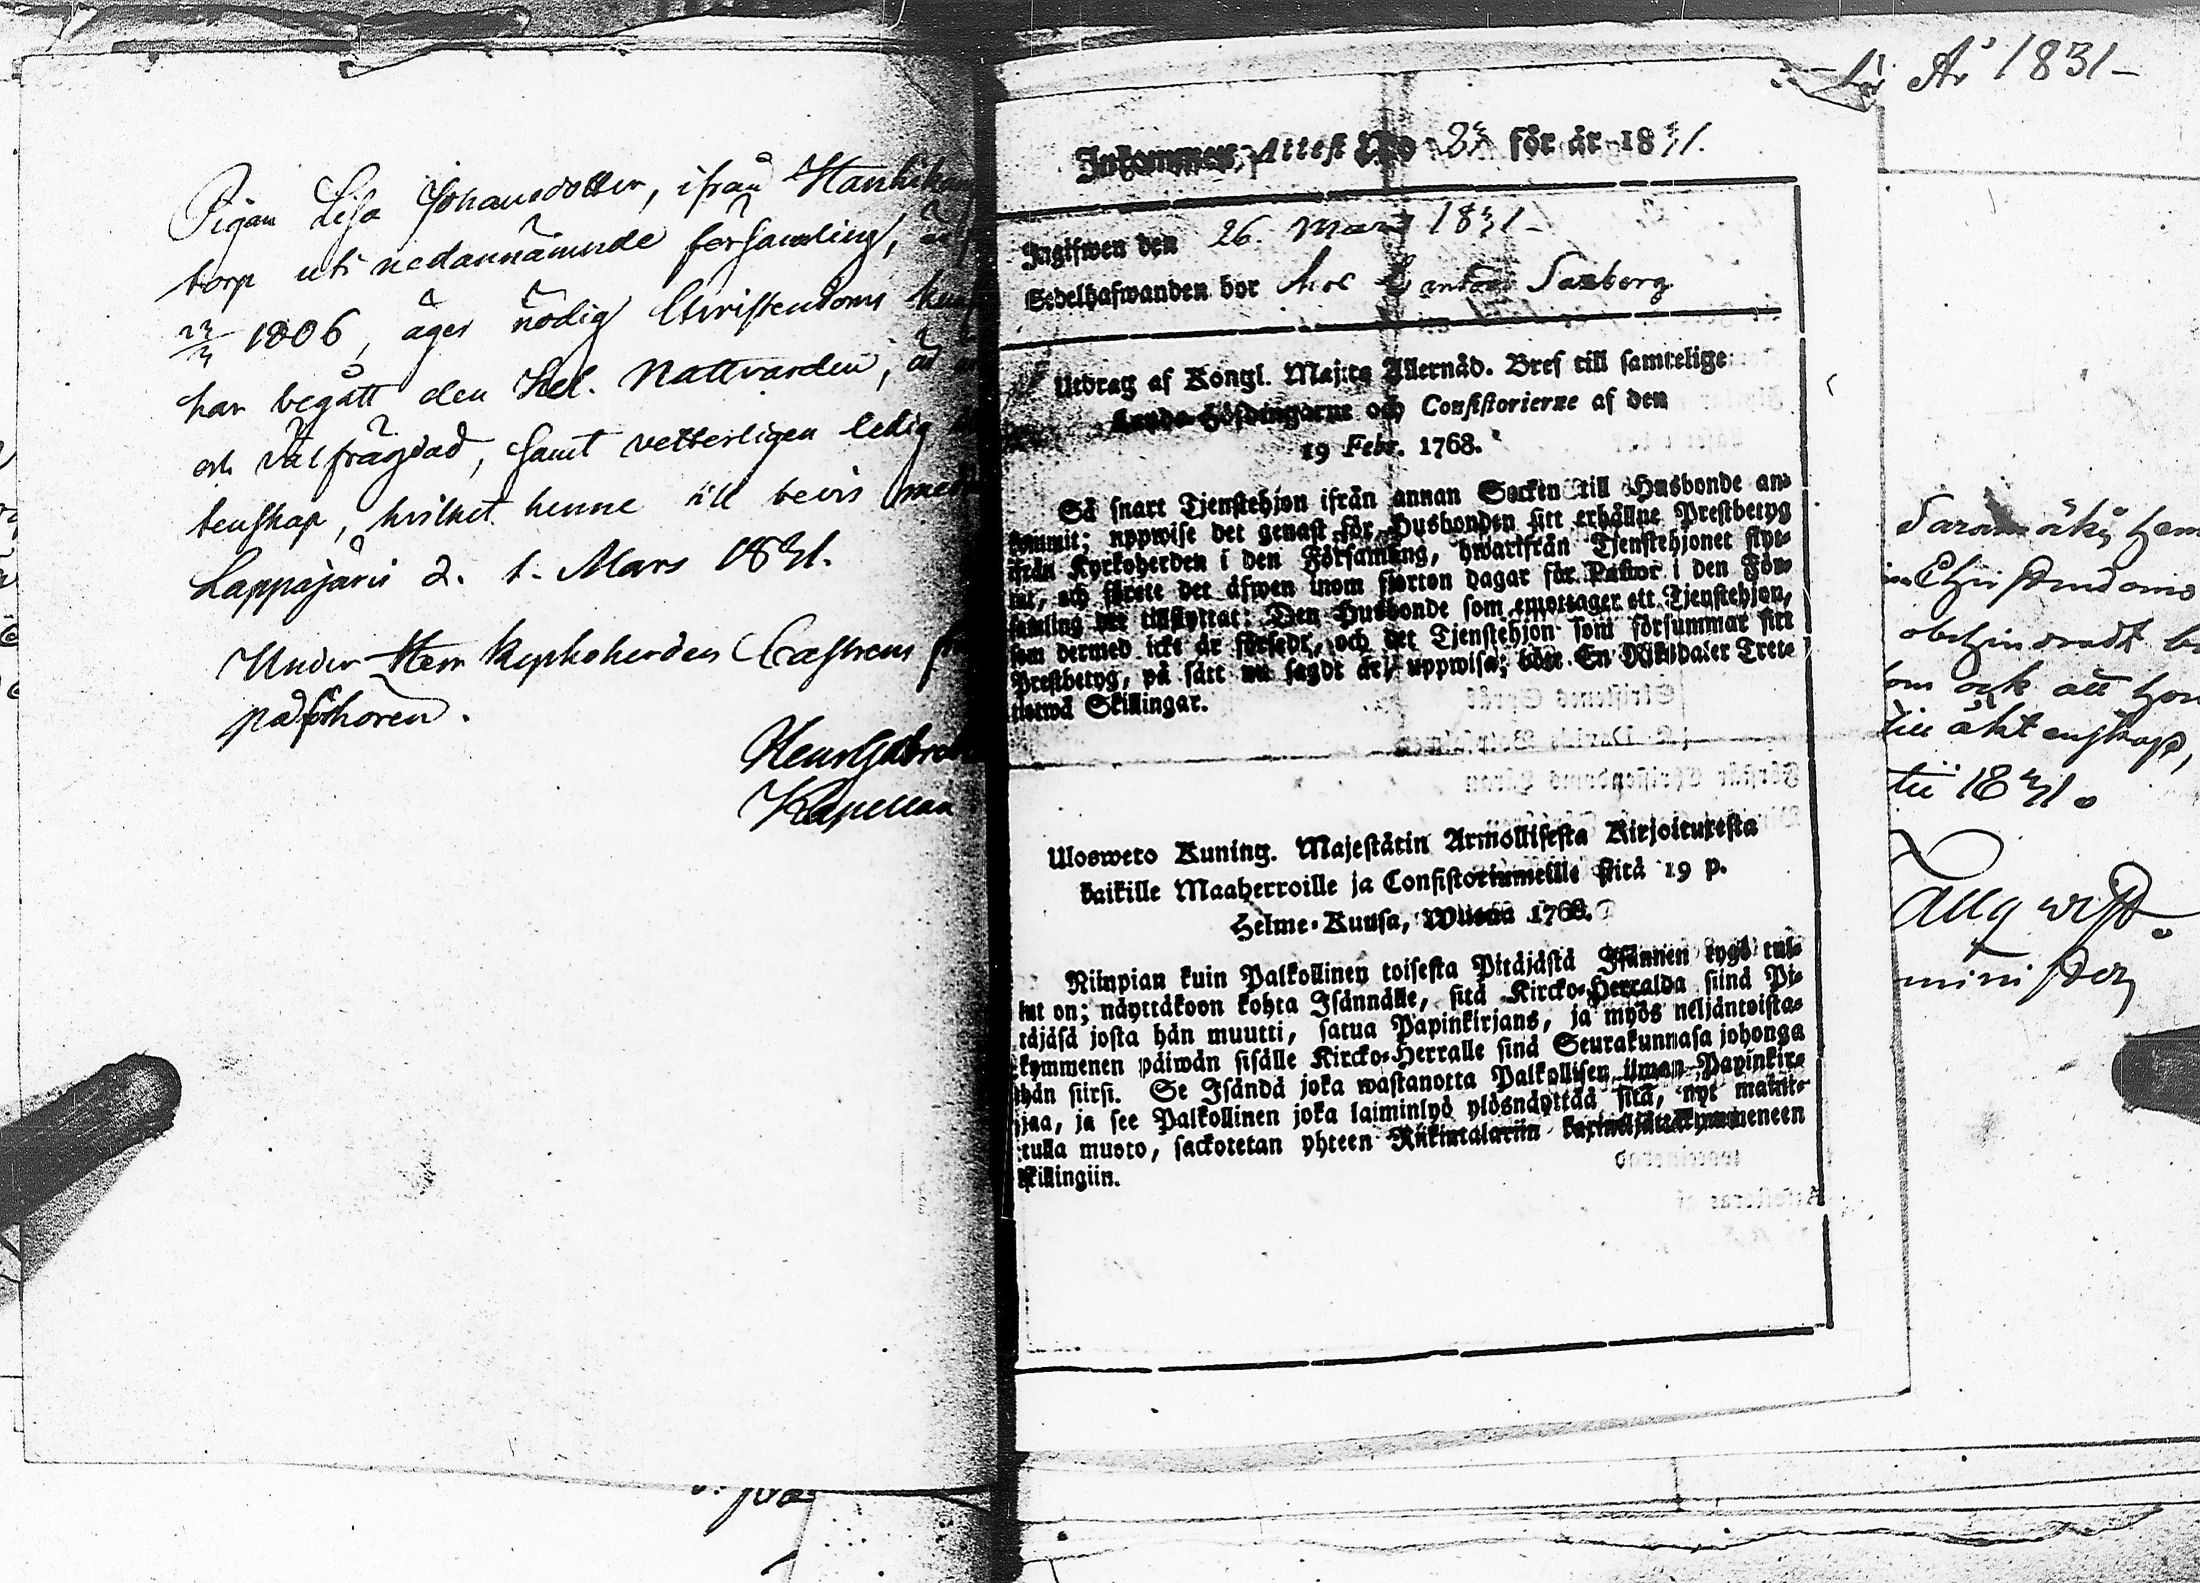 Pigan Lisa Johansdotter, ifrån
torp uti nedannämnde församling,
1806, äger nödig Christendoms
har begått den Hel. Nattvarden, är
och välfrägdad, samt vetterligen ledig
tenskap, hvilket henne till bevis
Lappajärvi d. 1. Mars 1831.
Under Herr Kyrkoherden Castrens
Kapellan
Inkommen Attest No för år 1831.
Ingifwen den 26. Mars 1831
Sedelhafwanden bor hos Cantor
Utdrag af Kongl. Maj:ts Allernåd. Bref till samtelige
Lands-Höfdingarne och Consistorierne af den
19 Febr. 1768.
Så snart Tjenstehjon ifrån annan Socken till Husbonde an-
kommit; uppwise det genast för Husbonden sitt erhållne Prestbetyg
ifrån Kyrkoherden i den Församling, hwarifrån Tjenstehjonet flyt-
tat, och förete det äfwen inom fjorton dagar för Pastor i den För-
samling det tillflyttat: Den Husbonde som emottager ett Tjenstehjon,
som dermed icke är försedt, och det Tjenstehjon som försummar sitt
Prestbetyg, på sätt nu sagdt är, uppwisa; böte En Riksdaler Tret-
tiotwå Skillingar.
Ulosweto Kuning. Majestätin Armollisesta Kirjoituxesta
kaikille Maaherroille ja Consistoriumeille siitä 19 p.
Helme-Kuusa, Wuonna 1768.
Niinpian kuin Palkollinen toisesta Pitäjästä Isännen tygö tul-
lut on; näyttäkoon kohta Isännälle, sitä Kircko-Herralda siinä Pi-
täjäsä josta hän muutti, satua Papinkirjans, ja myös neljäntoista-
kymmenen päiwän sisälle Kircko-Herralle siinä Seurakunnasa johonga
hän siirsi. Se Isändä joka wastanotta Palkollisen ilman Papinkir-
jaa, ja see Palkollinen joka laiminlyö ylösnäyttää sitä, nyt mainit-
tulla muoto, sackotetan yhteen Riikintalariin
skillingiin.
År 1831
Christendoms
obehindradt
om ock att hon
till äktenskap,
1831.